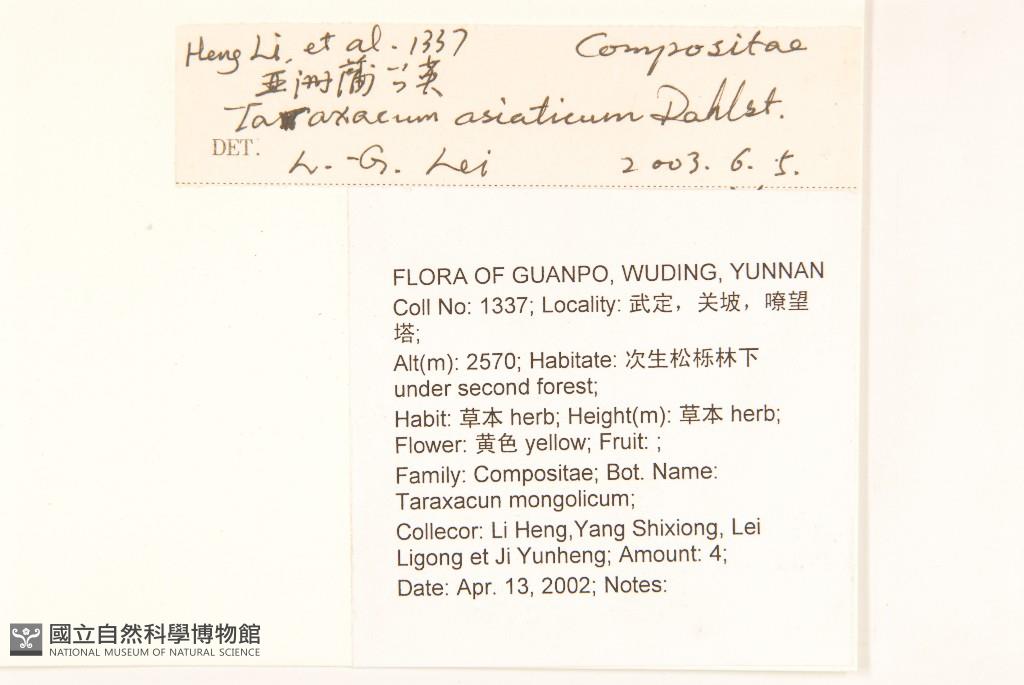 Heng Li, et al. 1337 Compositae
亚洲蒲公英
Taraxacum asiaticum Dahlst.
DET. L.-G. Lei 2003. 6. 5.
FLORA OF GUANPO, WUDING, YUNNAN
Coll No: 1337; Locality: 武定，关坡，嘹望
塔;
Alt(m): 2570; Habitate: 次生松栎林下
under second forest;
Habit: 草本 herb; Height(m): 草本 herb;
Flower: 黄色 yellow; Fruit: ;
Family: Compositae; Bot. Name:
Taraxacun mongolicum;
Collecor: Li Heng,Yang Shixiong, Lei
Ligong et Ji Yunheng; Amount: 4;
Date: Apr. 13, 2002; Notes:
國立自然科學博物館
NATIONAL MUSEUM OF NATURAL SCIENCE